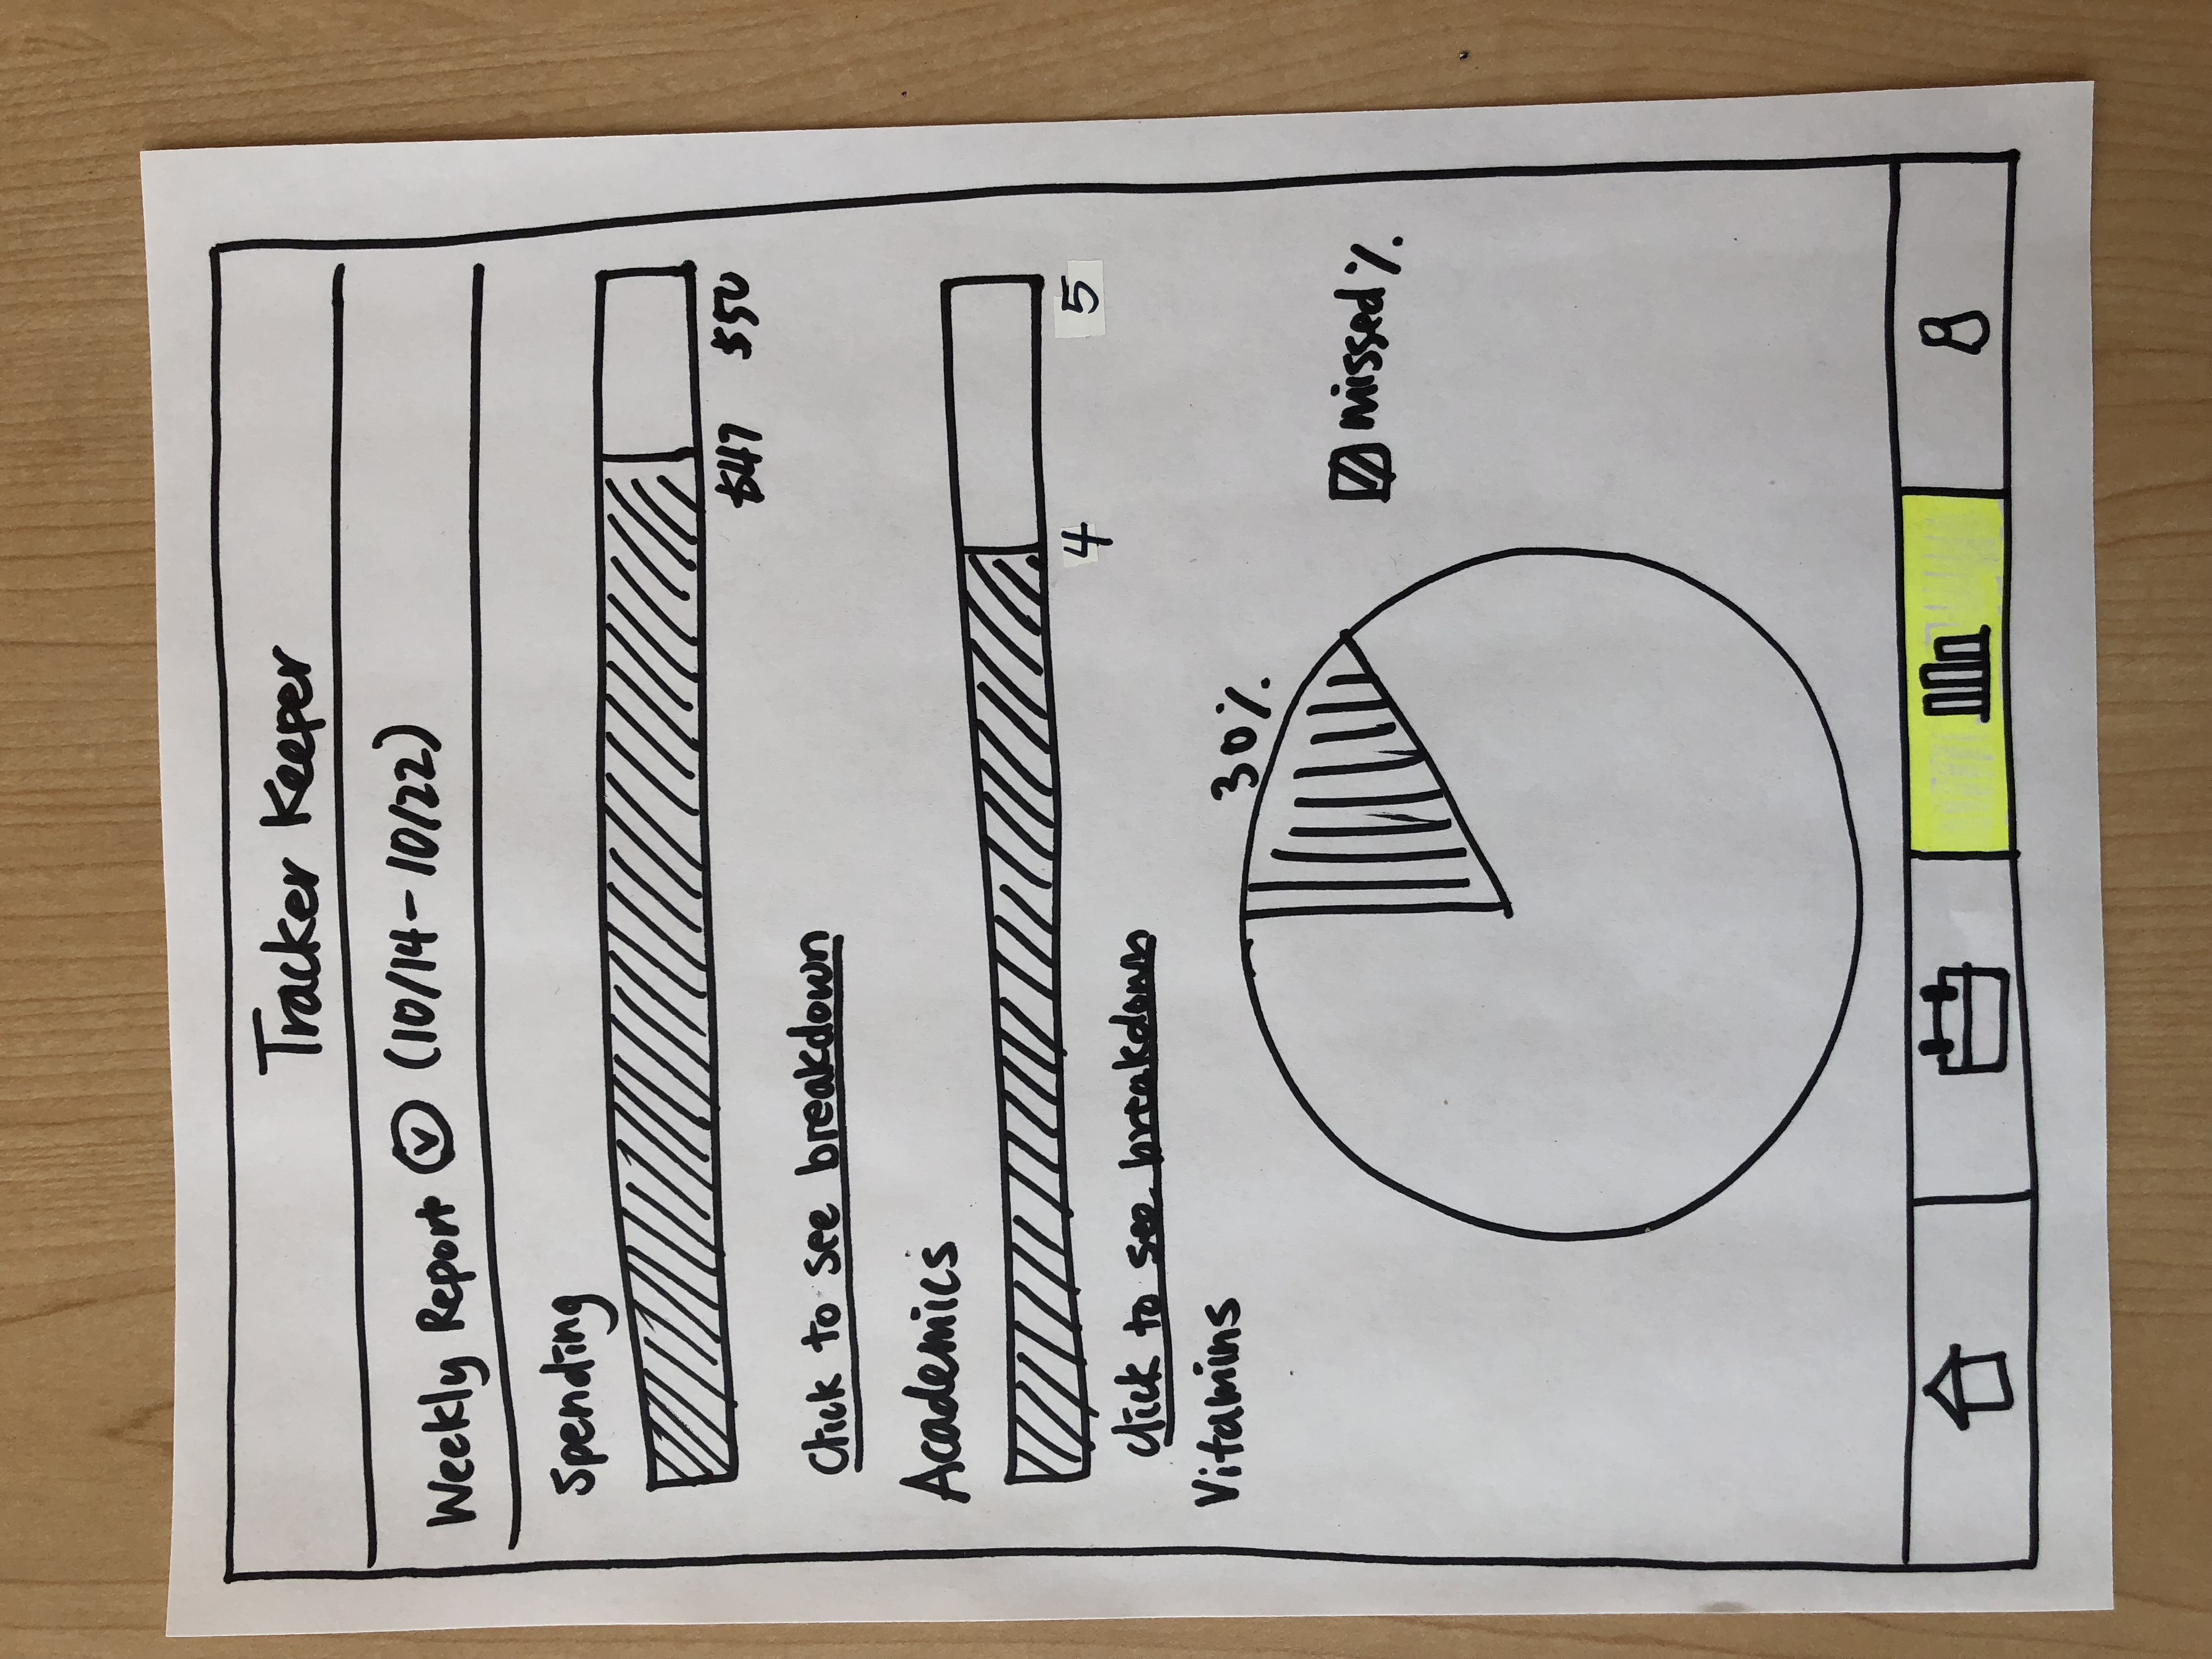 Tracker Keeper
Weekly Report (10/14 - 10/22)
Spending
$47 $50
Click to see breakdown
Academics
4 5
Click to see breakdown
Vitamins
30%
missed %